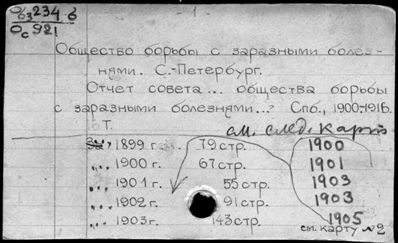 О/63 234 б
Ос 921
Общество борьбы с заразными болез-
нями. С.-Петербург.
Отчет совета... общества борьбы
с заразными болезнями...? Спб., 1900-1916.
Т.
см. след. карт
" 1899 г. 79 стр. 1900
" 1900 г. 67 стр. 1901
" 1901 г. 55 стр. 1903
" 1902 г. 91 стр. 1903
" 1903 г. 143 стр. 1905
см. карту №2